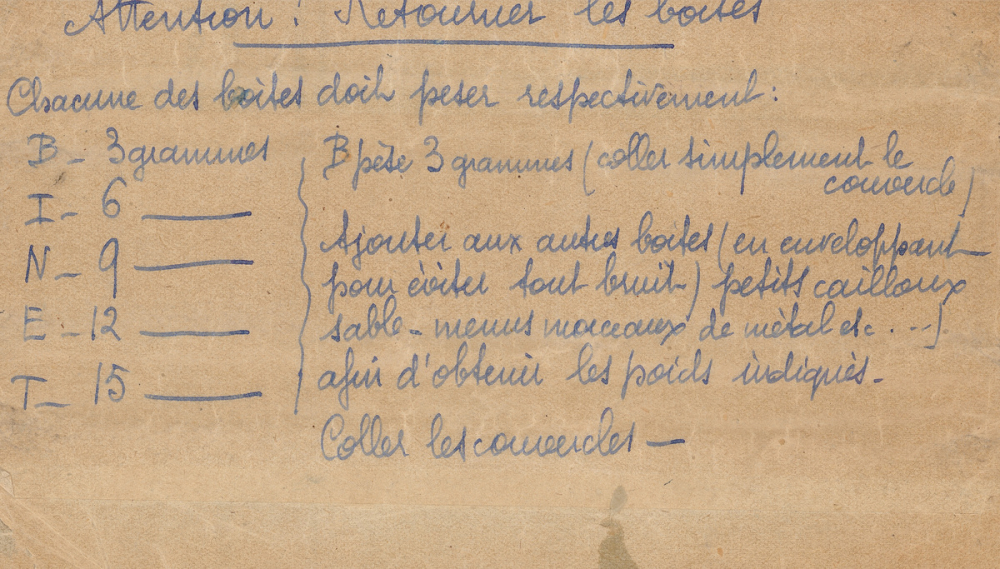 Attention ! Retourner les boîtes
Chacune des boîtes doit peser respectivement :
B - 3 grammes
I - 6 ———
N - 9 ———
E - 12 ———
T - 15 ———
B pèse 3 grammes (coller simplement le
couvercle)
Ajouter aux autres boîtes (en enveloppant
pour éviter tout bruit) petits cailloux
sable - menus morceaux de métal etc . --).
afin d'obtenir les poids indiqués -
Coller les couvercles —